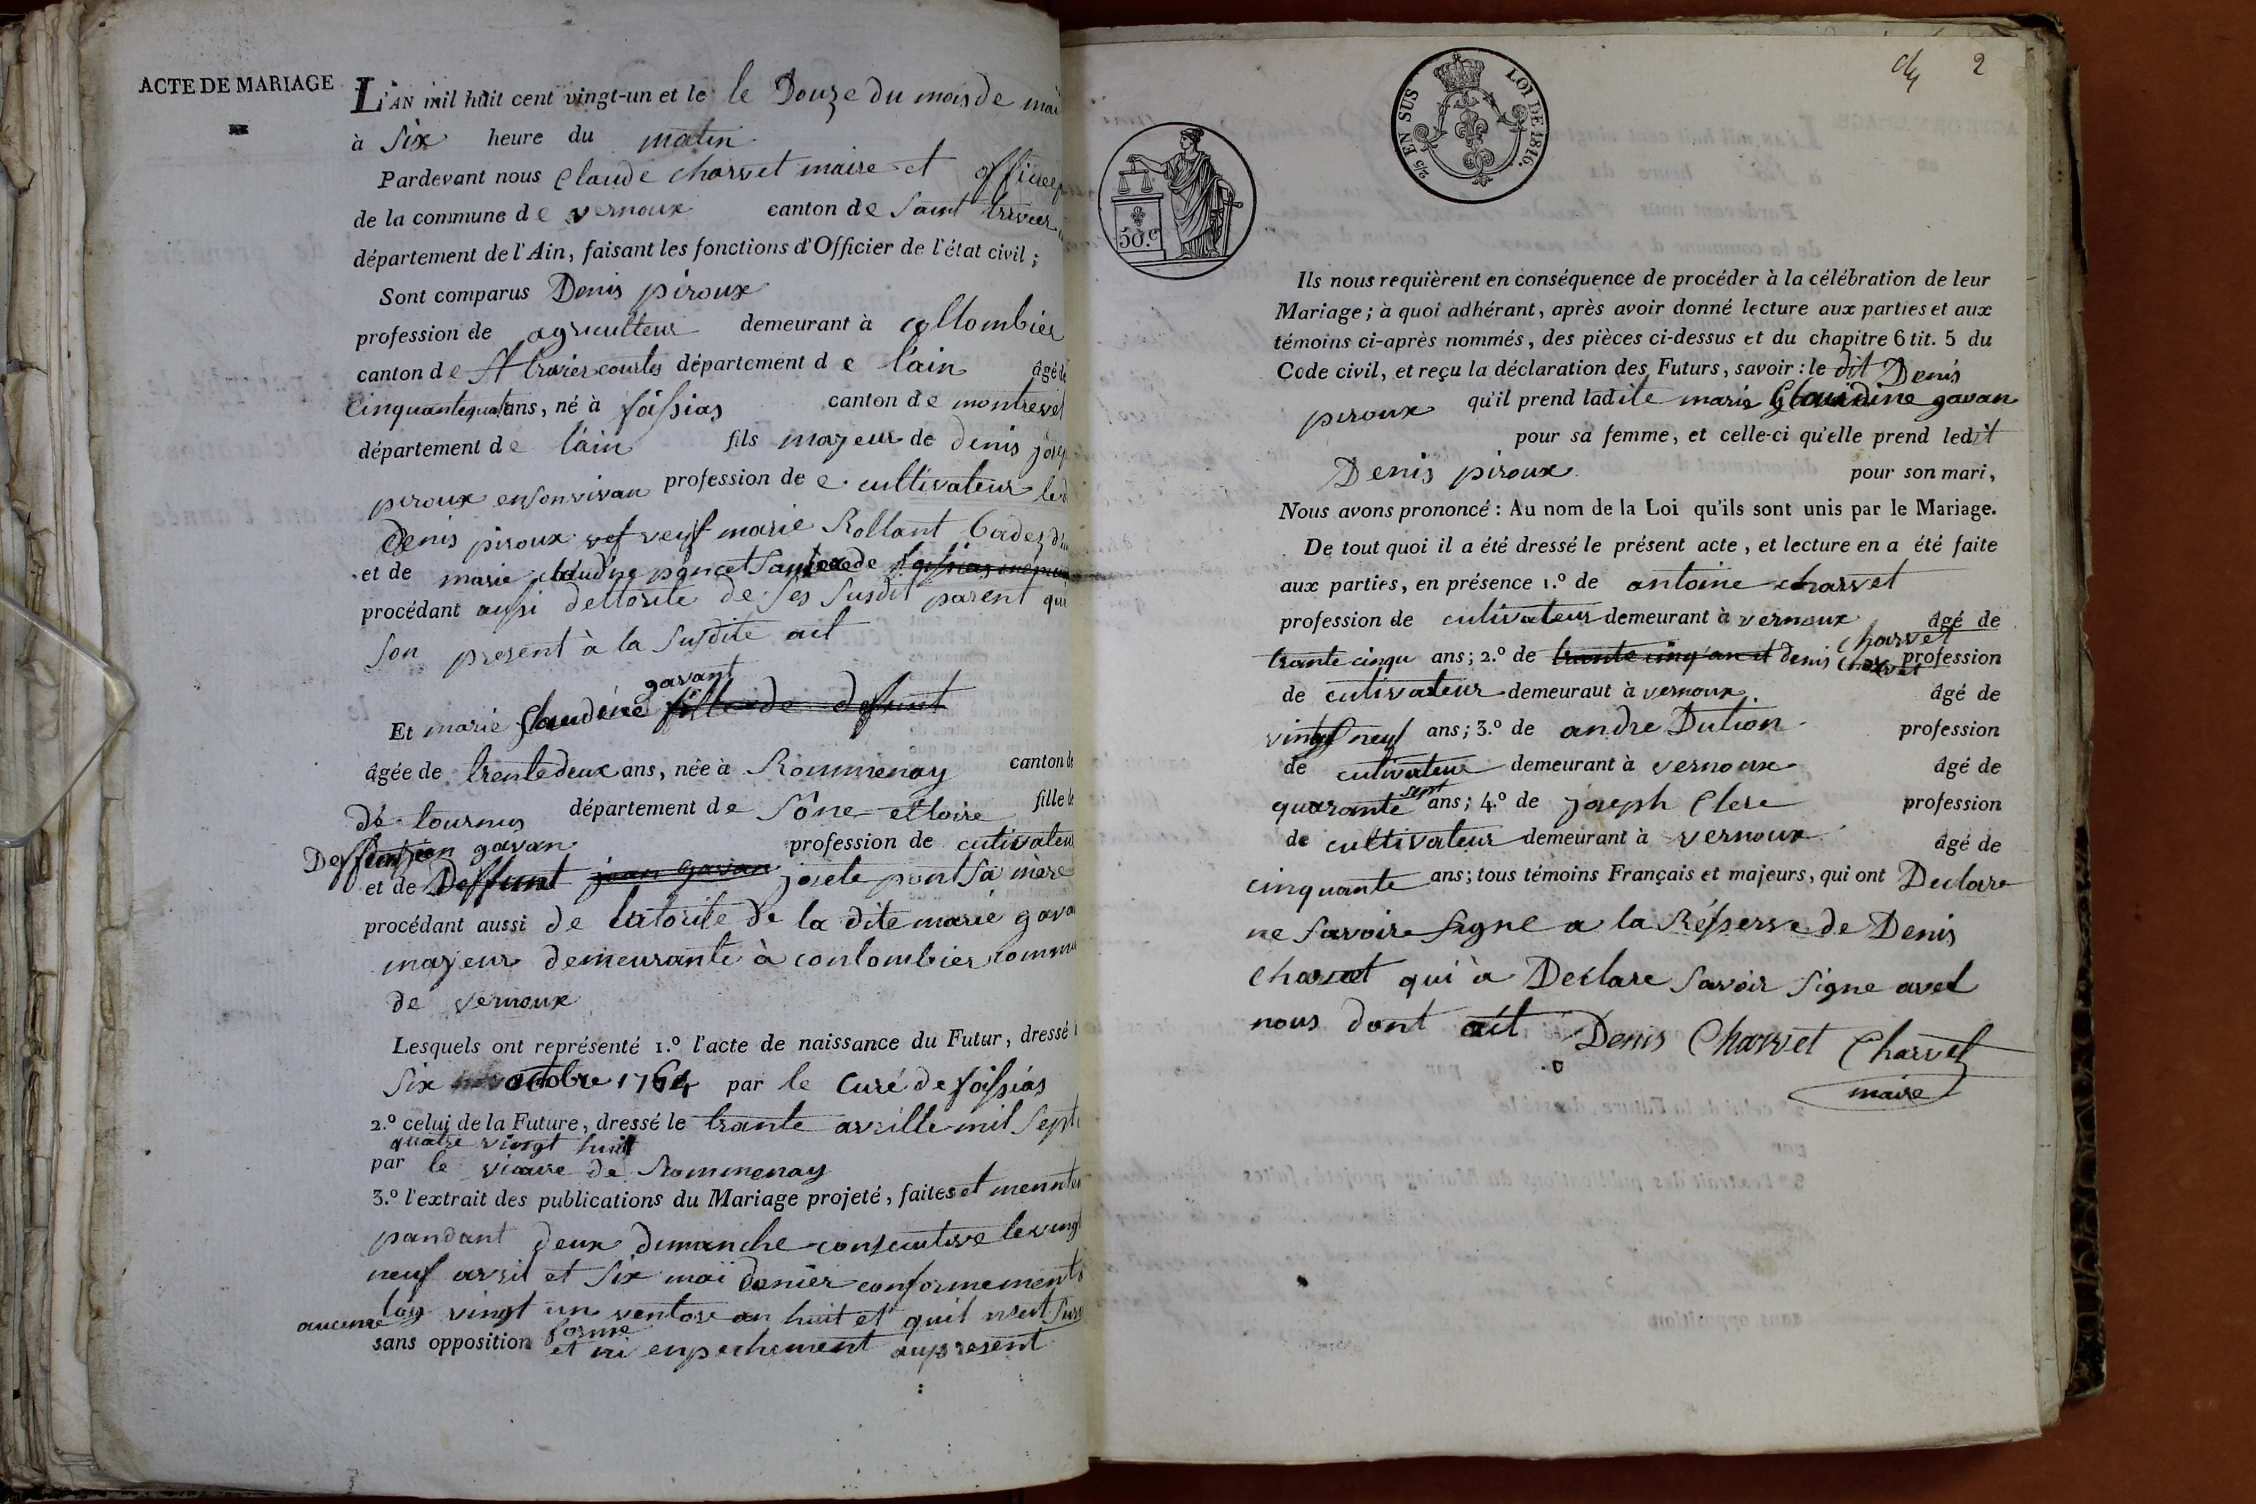 ACTE DE MARIAGE
L'AN mil huit cent vingt-un et le le Douze du mois de mai
à Six heure du matin
Pardevant nous Claude charvet maire et officier
de la commune de vernoux canton de Saint trivier
département de l'Ain, faisant les fonctions d'Officier de l'état civil ;
Sont comparus Denis piroux
profession de agriculteur demeurant à collombier
canton de St trivier courtes département de l'ain âgé de
cinquantequatre ans, né à foissias canton de montrevel
département de l'ain fils mayeur de denis josep
piroux ensonvivan profession de e cultivateur led
Denis piroux vef veuf marie Rollant
et de marie claudine poncet
procédant aussi dellotorite de ses susdit parent qui
son present à la susdite act
gavant
Et marie Claudine fille de defunt
âgée de trentedeux ans, née à Rommenay canton de
de tournus département de Sône et loire fille de
Deffunt jean gavan profession de cutivateur
et de Deffunt jean gavan josete pont sa mère
procédant aussi de latorite de la dite marie gava
mayeur demeurante à conlombier commu
de vernoux
Lesquels ont représenté 1.º l'acte de naissance du Futur, dressé l
Six octobre 1764 par le Curé de foissias
2.º celui de la Future, dressé le trante avrille mil Sept
quatre vingt huit
par le vicaire de Rommenay
3.º l'extrait des publications du Mariage projeté, faites et
pandant deux dimanche consecutive le vingt
neuf avril et Six mai danier conformement
loy vingt un ventose an huit et quil nest Surv
aucune
forme
sans opposition et ni enpechement aupresent
2
2/5 EN SUS LOI DE 1816.
50.c
Ils nous requièrent en conséquence de procéder à la célébration de leur
Mariage ; à quoi adhérant, après avoir donné lecture aux parties et aux
témoins ci-après nommés, des pièces ci-dessus et du chapitre 6 tit. 5 du
Code civil, et reçu la déclaration des Futurs, savoir : le dit Denis
piroux qu'il prend ladite marie Claudine gavan
pour sa femme, et celle-ci qu'elle prend ledit
Denis piroux pour son mari,
Nous avons prononcé : Au nom de la Loi qu'ils sont unis par le Mariage.
De tout quoi il a été dressé le présent acte, et lecture en a été faite
aux parties, en présence 1.º de antoine charvet
profession de cutivateur demeurant à vernoux âgé de
charvet
trante cinqu ans ; 2.º de trante cinq an et denis charvet profession
de cutivateur demeuraut à vernoux. âgé de
vingt neuf ans ; 3.º de andre Dution profession
de cutivateur demeurant à vernoux âgé de
sept
quarante ans ; 4.º de joseph Clere profession
de cultivateur demeurant à vernoux âgé de
cinquante ans ; tous témoins Français et majeurs, qui ont Declare
ne savoir signe a la Résserve de Denis
charvet qui à Declare savoir signe avec
nous dont act Denis Charvet Charvet
maire